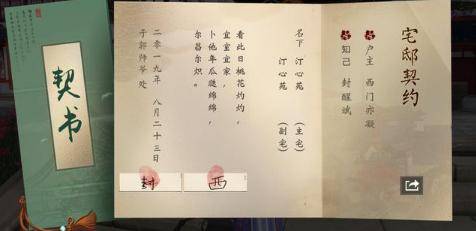 契书
宅邸契约
户主 西门亦凝
知己 封醒斌
名下 汀心苑 (主宅)
汀心苑 (副宅)
看此日桃花灼灼，
宜室宜家，
卜他年瓜瓞绵绵，
尔昌尔炽。
二零一九年 八月二十三日
于郭师爷处
西
封